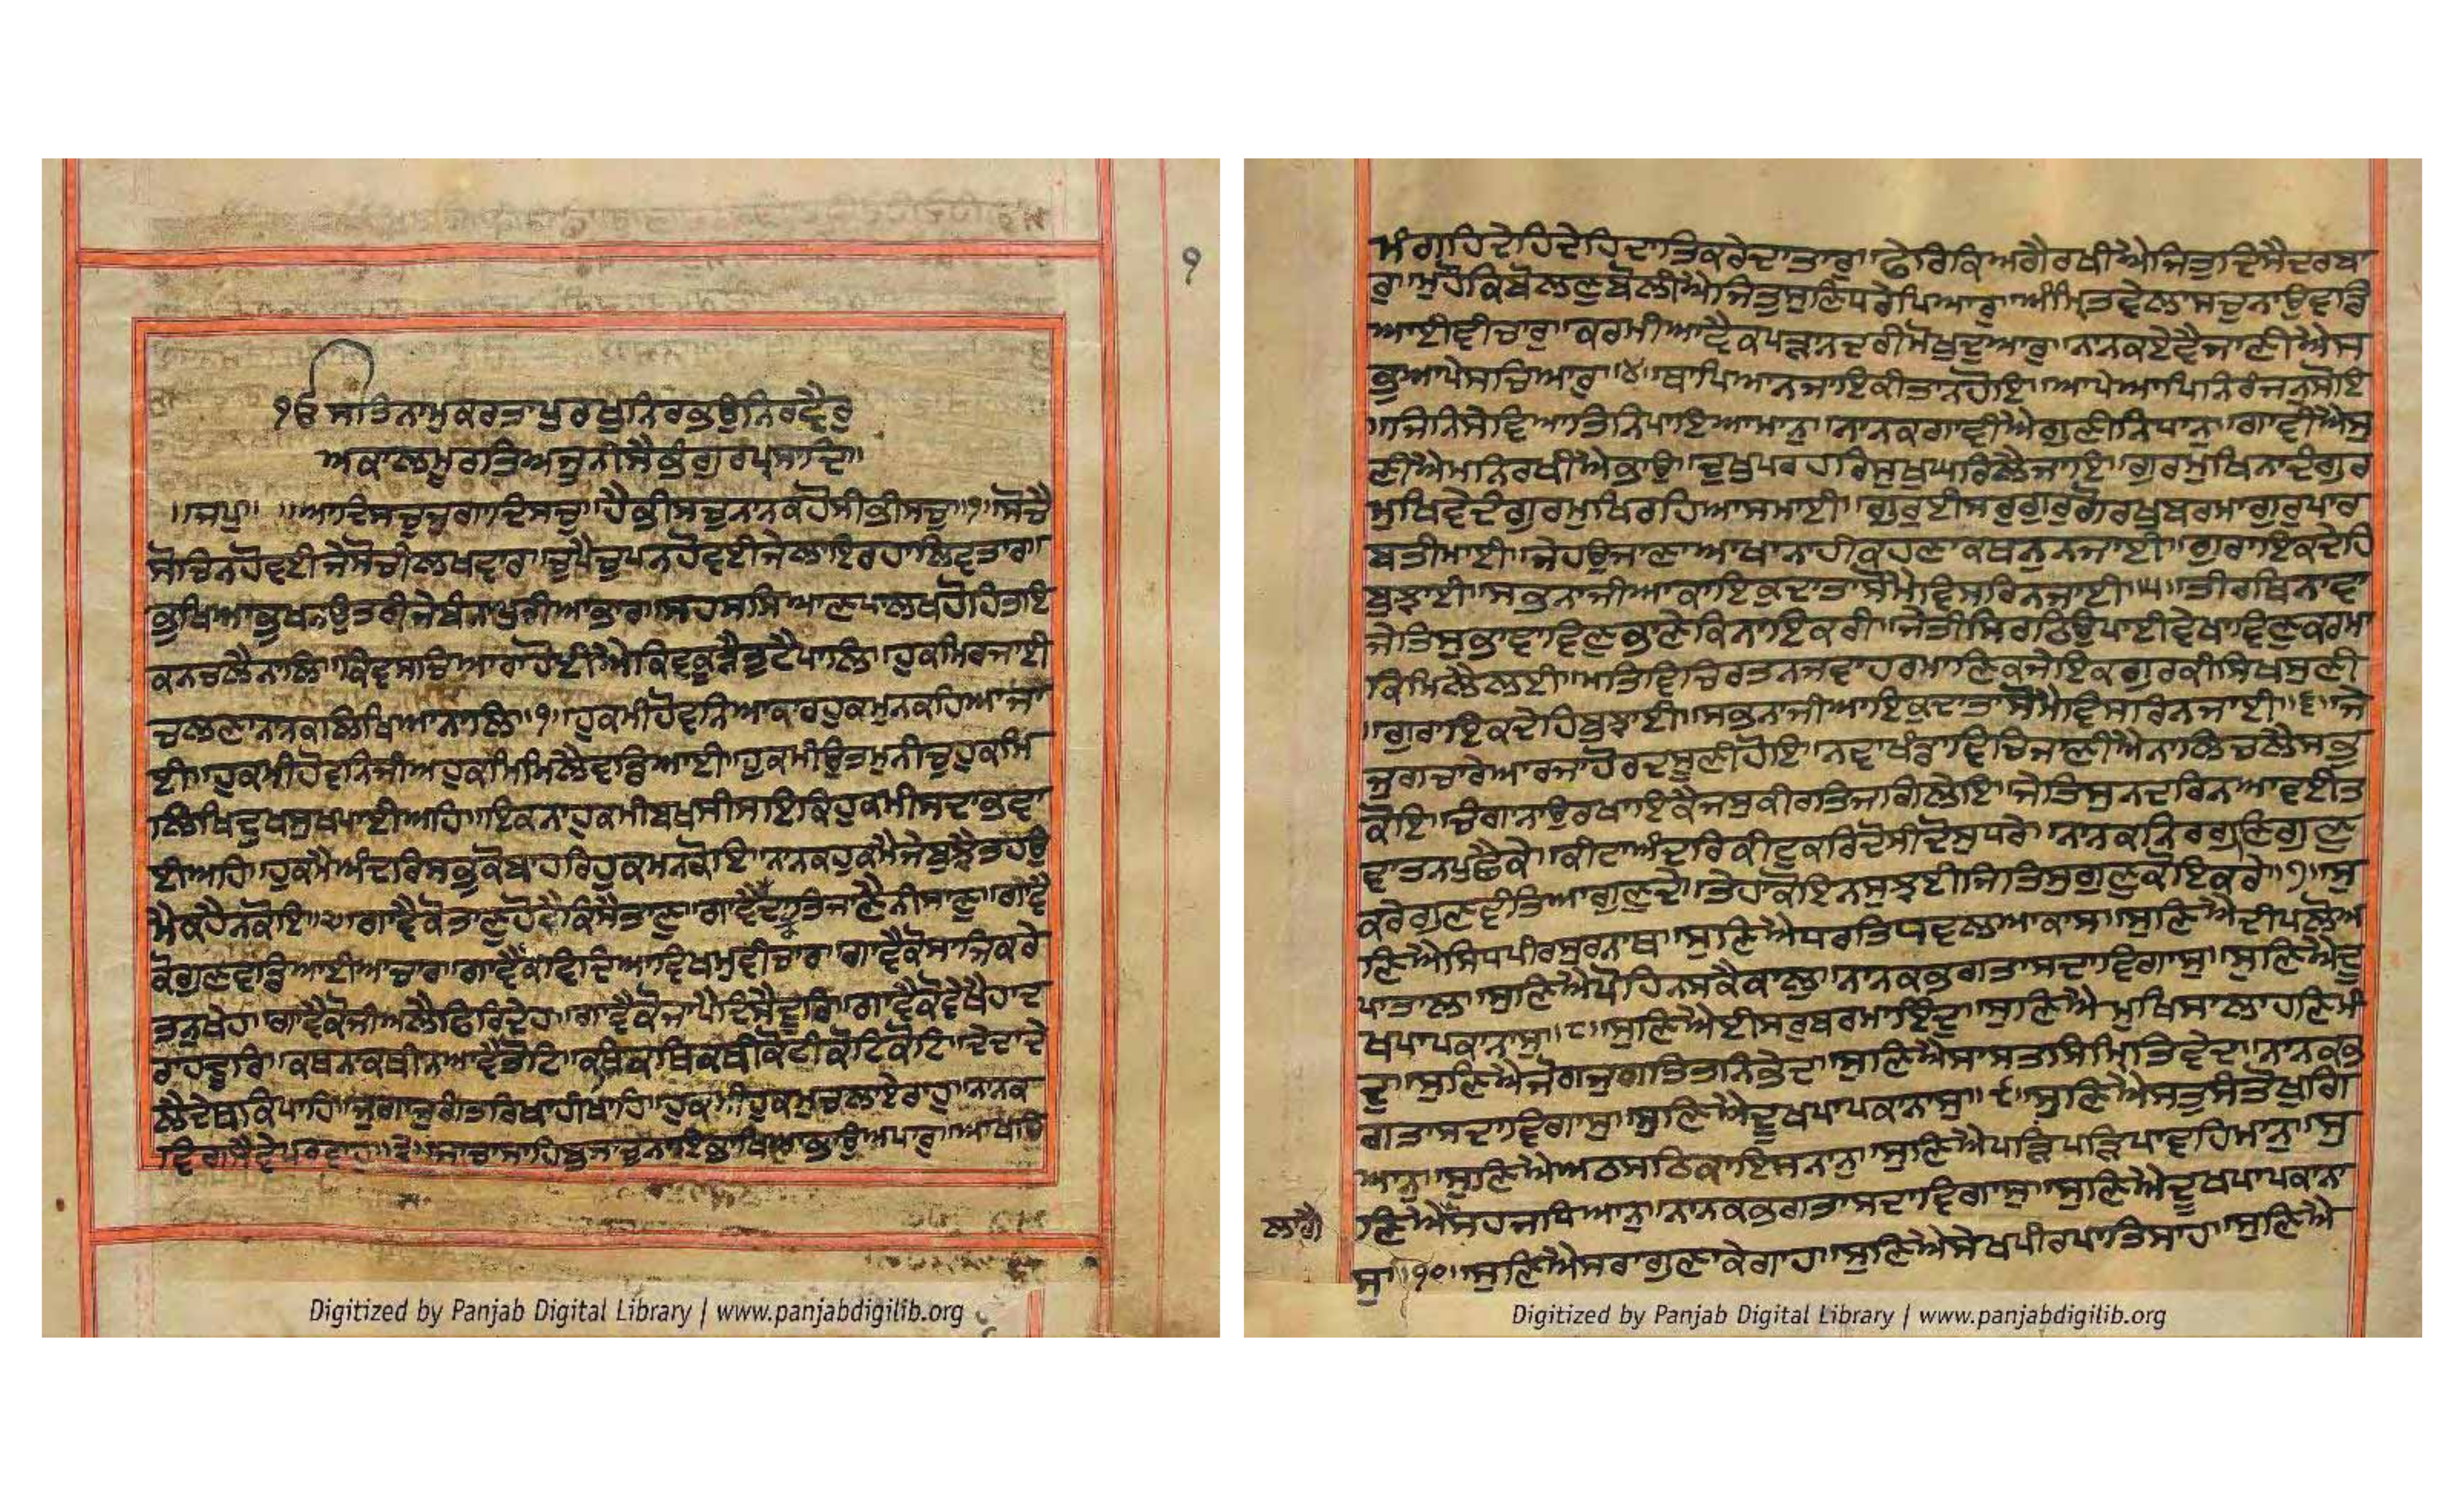 ੧
ੴ ਸਤਿਨਾਮੁਕਰਤਾਪੁਰਖੁਨਿਰਭਉਨਿਰਵੈਰੁ
ਅਕਾਲਮੂਰਤਿਅਜੂਨੀਸੈਭੰਗੁਰਪ੍ਰਸਾਦਿ॥
॥ਜਪੁ॥ ॥ਆਦਿਸਚੁਜੁਗਾਦਿਸਚੁ॥ਹੈਭੀਸਚੁਨਾਨਕਹੋਸੀਭੀਸਚੁ॥੧॥ਸੋਚੈ
ਸੋਚਿਨਹੋਵਈਜੇਸੋਚੀਲਖਵਾਰ॥ਚੁਪੈਚੁਪਨਹੋਵਈਜੇਲਾਇਰਹਾਲਿਵਤਾਰ॥
ਭੁਖਿਆਭੁਖਨਉਤਰੀਜੇਬੰਨਾਪੁਰੀਆਭਾਰ॥ਸਹਸਸਿਆਣਪਾਲਖਹੋਹਿਤਾਇ
ਕਨਚਲੈਨਾਲਿ॥ਕਿਵਸਚਿਆਰਾਹੋਈਐਕਿਵਕੂੜੈਤੁਟੈਪਾਲਿ॥ਹੁਕਮਿਰਜਾਈ
ਚਲਣਾਨਾਨਕਲਿਖਿਆਨਾਲਿ॥੧॥ਹੁਕਮੀਹੋਵਨਿਆਕਾਰਹੁਕਮੁਨਕਹਿਆਜਾ
ਈ॥ਹੁਕਮੀਹੋਵਨਿਜੀਅਹੁਕਮਿਮਿਲੈਵਡਿਆਈ॥ਹੁਕਮੀਉਤਮੁਨੀਚੁਹੁਕਮਿ
ਲਿਖਿਦੁਖਸੁਖਪਾਈਅਹਿ॥ਇਕਨਾਹੁਕਮੀਬਖਸੀਸਇਕਿਹੁਕਮੀਸਦਾਭਵਾ
ਈਅਹਿ॥ਹੁਕਮੈਅੰਦਰਿਸਭੁਕੋਬਾਹਰਿਹੁਕਮਨਕੋਇ॥ਨਾਨਕਹੁਕਮੈਜੇਬੁਝੈਤਹਉ
ਮੈਕਹੈਨਕੋਇ॥੨॥ਗਾਵੈਕੋਤਾਣੁਹੋਵੈਕਿਸੈਤਾਣੁ॥ਗਾਵੈਕੋਦਾਤਿਜਾਣੈਨੀਸਾਣੁ॥ਗਾਵੈ
ਕੋਗੁਣਵਡਿਆਈਆਚਾਰ॥ਗਾਵੈਕੋਵਿਦਿਆਵਿਖਮੁਵੀਚਾਰੁ॥ਗਾਵੈਕੋਸਾਜਿਕਰੇ
ਤਨੁਖੇਹ॥ਗਾਵੈਕੋਜੀਅਲੈਫਿਰਿਦੇਹ॥ਗਾਵੈਕੋਜਾਪੈਦਿਸੈਦੂਰਿ॥ਗਾਵੈਕੋਵੇਖੈਹਾਦ
ਰਾਹਦੂਰਿ॥ਕਥਨਾਕਥੀਨਆਵੈਤੋਟਿ॥ਕਥਿਕਥਿਕਥੀਕੋਟੀਕੋਟਿਕੋਟਿ॥ਦੇਦਾਦੇ
ਲੈਦੇਥਕਿਪਾਹਿ॥ਜੁਗਾਜੁਗੰਤਰਿਖਾਹੀਖਾਹਿ॥ਹੁਕਮੀਹੁਕਮੁਚਲਾਏਰਾਹੁ॥ਨਾਨਕ
ਵਿਗਸੈਵੇਪਰਵਾਹੁ॥੩॥ਸਾਚਾਸਾਹਿਬੁਸਾਚੁਨਾਇਭਾਖਿਆਭਾਉਅਪਾਰੁ॥ਆਖਹਿ
Digitized by Panjab Digital Library | www.panjabdigilib.org
ਮੰਗਹਿਦੇਹਿਦੇਹਿਦਾਤਿਕਰੇਦਾਤਾਰੁ॥ਫੇਰਿਕਿਅਗੈਰਖੀਐਜਿਤੁਦਿਸੈਦਰਬਾ
ਰੁ॥ਮੁਹੌਕਿਬੋਲਣੁਬੋਲੀਐਜਿਤੁਸੁਣਿਧਰੇਪਿਆਰੁ॥ਅੰਮ੍ਰਿਤਵੇਲਾਸਚੁਨਾਉਵਡਿ
ਆਈਵੀਚਾਰੁ॥ਕਰਮੀਆਵੈਕਪੜਾਨਦਰੀਮੋਖੁਦੁਆਰੁ॥ਨਾਨਕਏਵੈਜਾਣੀਐਸ
ਭੁਆਪੇਸਚਿਆਰੁ॥੪॥ਥਾਪਿਆਨਜਾਇਕੀਤਾਨਹੋਇ॥ਆਪੇਆਪਿਨਿਰੰਜਨੁਸੋਇ
॥ਜਿਨਿਸੇਵਿਆਤਿਨਿਪਾਇਆਮਾਨੁ॥ਨਾਨਕਗਾਵੀਐਗੁਣੀਨਿਧਾਨੁ॥ਗਾਵੀਐਸੁ
ਣੀਐਮਨਿਰਖੀਐਭਾਉ॥ਦੁਖੁਪਰਹਰਿਸੁਖੁਘਰਿਲੈਜਾਇ॥ਗੁਰਮੁਖਿਨਾਦੰਗੁਰ
ਮੁਖਿਵੇਦੰਗੁਰਮੁਖਿਰਹਿਆਸਮਾਈ॥ਗੁਰੁਈਸਰੁਗੁਰੁਗੋਰਖੁਬਰਮਾਗੁਰੁਪਾਰ
ਬਤੀਮਾਈ॥ਜੇਹਉਜਾਣਾਆਖਾਨਾਹੀਕਹਣਾਕਥਨੁਨਜਾਈ॥ਗੁਰਾਇਕਦੇਹਿ
ਬੁਝਾਈ॥ਸਭਨਾਜੀਆਕਾਇਕੁਦਾਤਾਸੋਮੈਵਿਸਰਿਨਜਾਈ॥੫॥ਤੀਰਥਿਨਾਵਾ
ਜੇਤਿਸੁਭਾਵਾਵਿਣੁਭਾਣੇਕਿਨਾਇਕਰੀ॥ਜੇਤੀਸਿਰਠਿਉਪਾਈਵੇਖਾਵਿਣੁਕਰਮਾ
ਕਿਮਿਲੈਲਈ॥ਮਤਿਵਿਚਿਰਤਨਜਵਾਹਰਮਾਣਿਕਜੇਇਕਗੁਰਕੀਸਿਖਸੁਣੀ
॥ਗੁਰਾਇਕਦੇਹਿਬੁਝਾਈ॥ਸਭਨਾਜੀਆਇਕੁਦਾਤਾਸੋਮੈਵਿਸਰਿਨਜਾਈ॥੬॥ਜੇ
ਜੁਗਚਾਰੇਆਰਜਾਹੋਰਦਸੂਣੀਹੋਇ॥ਨਵਾਖੰਡਾਵਿਚਿਜਾਣੀਐਨਾਲਿਚਲੈਸਭੁ
ਕੋਇ॥ਚੰਗਾਨਾਉਰਖਾਇਕੈਜਸੁਕੀਰਤਿਜਗਿਲੇਇ॥ਜੇਤਿਸੁਨਦਰਿਨਆਵਈਤ
ਵਾਤਨਪੁਛੈਕੇ॥ਕੀਟਾਅੰਦਰਿਕੀਟੁਕਰਿਦੋਸੀਦੋਸੁਧਰੇ॥ਨਾਨਕਨਿਰਗੁਣਿਗੁਣੁ
ਕਰੇਗੁਣਵੰਤਿਆਗੁਣੁਦੇ॥ਤੇਹਾਕੋਇਨਸੁਝਈਜਿਤਿਸੁਗੁਣੁਕੋਇਕਰੇ॥੭॥ਸੁ
ਣਿਐਸਿਧਪੀਰਸੁਰਨਾਥ॥ਸੁਣਿਐਧਰਤਿਧਵਲਆਕਾਸ॥ਸੁਣਿਐਦੀਪਲੋਅ
ਪਾਤਾਲ॥ਸੁਣਿਐਪੋਹਿਨਸਕੈਕਾਲੁ॥ਨਾਨਕਭਗਤਾਸਦਾਵਿਗਾਸੁ॥ਸੁਣਿਐਦੂ
ਖਪਾਪਕਾਨਾਸੁ॥੮॥ਸੁਣਿਐਈਸਰੁਬਰਮਾਇੰਦੁ॥ਸੁਣਿਐਮੁਖਿਸਾਲਾਹਣਿਮੰ
ਦੁ॥ਸੁਣਿਐਜੋਗਜੁਗਤਿਤਨਿਭੇਦ॥ਸੁਣਿਐਸਾਸਤਸਿਮ੍ਰਿਤਿਵੇਦ॥ਨਾਨਕਭ
ਗਤਾਸਦਾਵਿਗਾਸੁ॥ਸੁਣਿਐਦੂਖਪਾਪਕਾਨਾਸੁ॥੯॥ਸੁਣਿਐਸਤੁਸੰਤੋਖੁਗਿ
ਆਨੁ॥ਸੁਣਿਐਅਠਸਠਿਕਾਇਸਨਾਨੁ॥ਸੁਣਿਐਪੜਿਪੜਿਪਾਵਹਿਮਾਨੁ॥ਸੁ
ਲਾਗੈ
ਣਿਐਸਹਜਧਿਆਨੁ॥ਨਾਨਕਭਗਤਾਸਦਾਵਿਗਾਸੁ॥ਸੁਣਿਐਦੂਖਪਾਪਕਾਨਾ
ਸੁ॥੧੦॥ਸੁਣਿਐਸਰਾਗੁਣਾਕੇਗਾਹ॥ਸੁਣਿਐਸੇਖਪੀਰਪਾਤਿਸਾਹ॥ਸੁਣਿਐ
Digitized by Panjab Digital Library | www.panjabdigilib.org